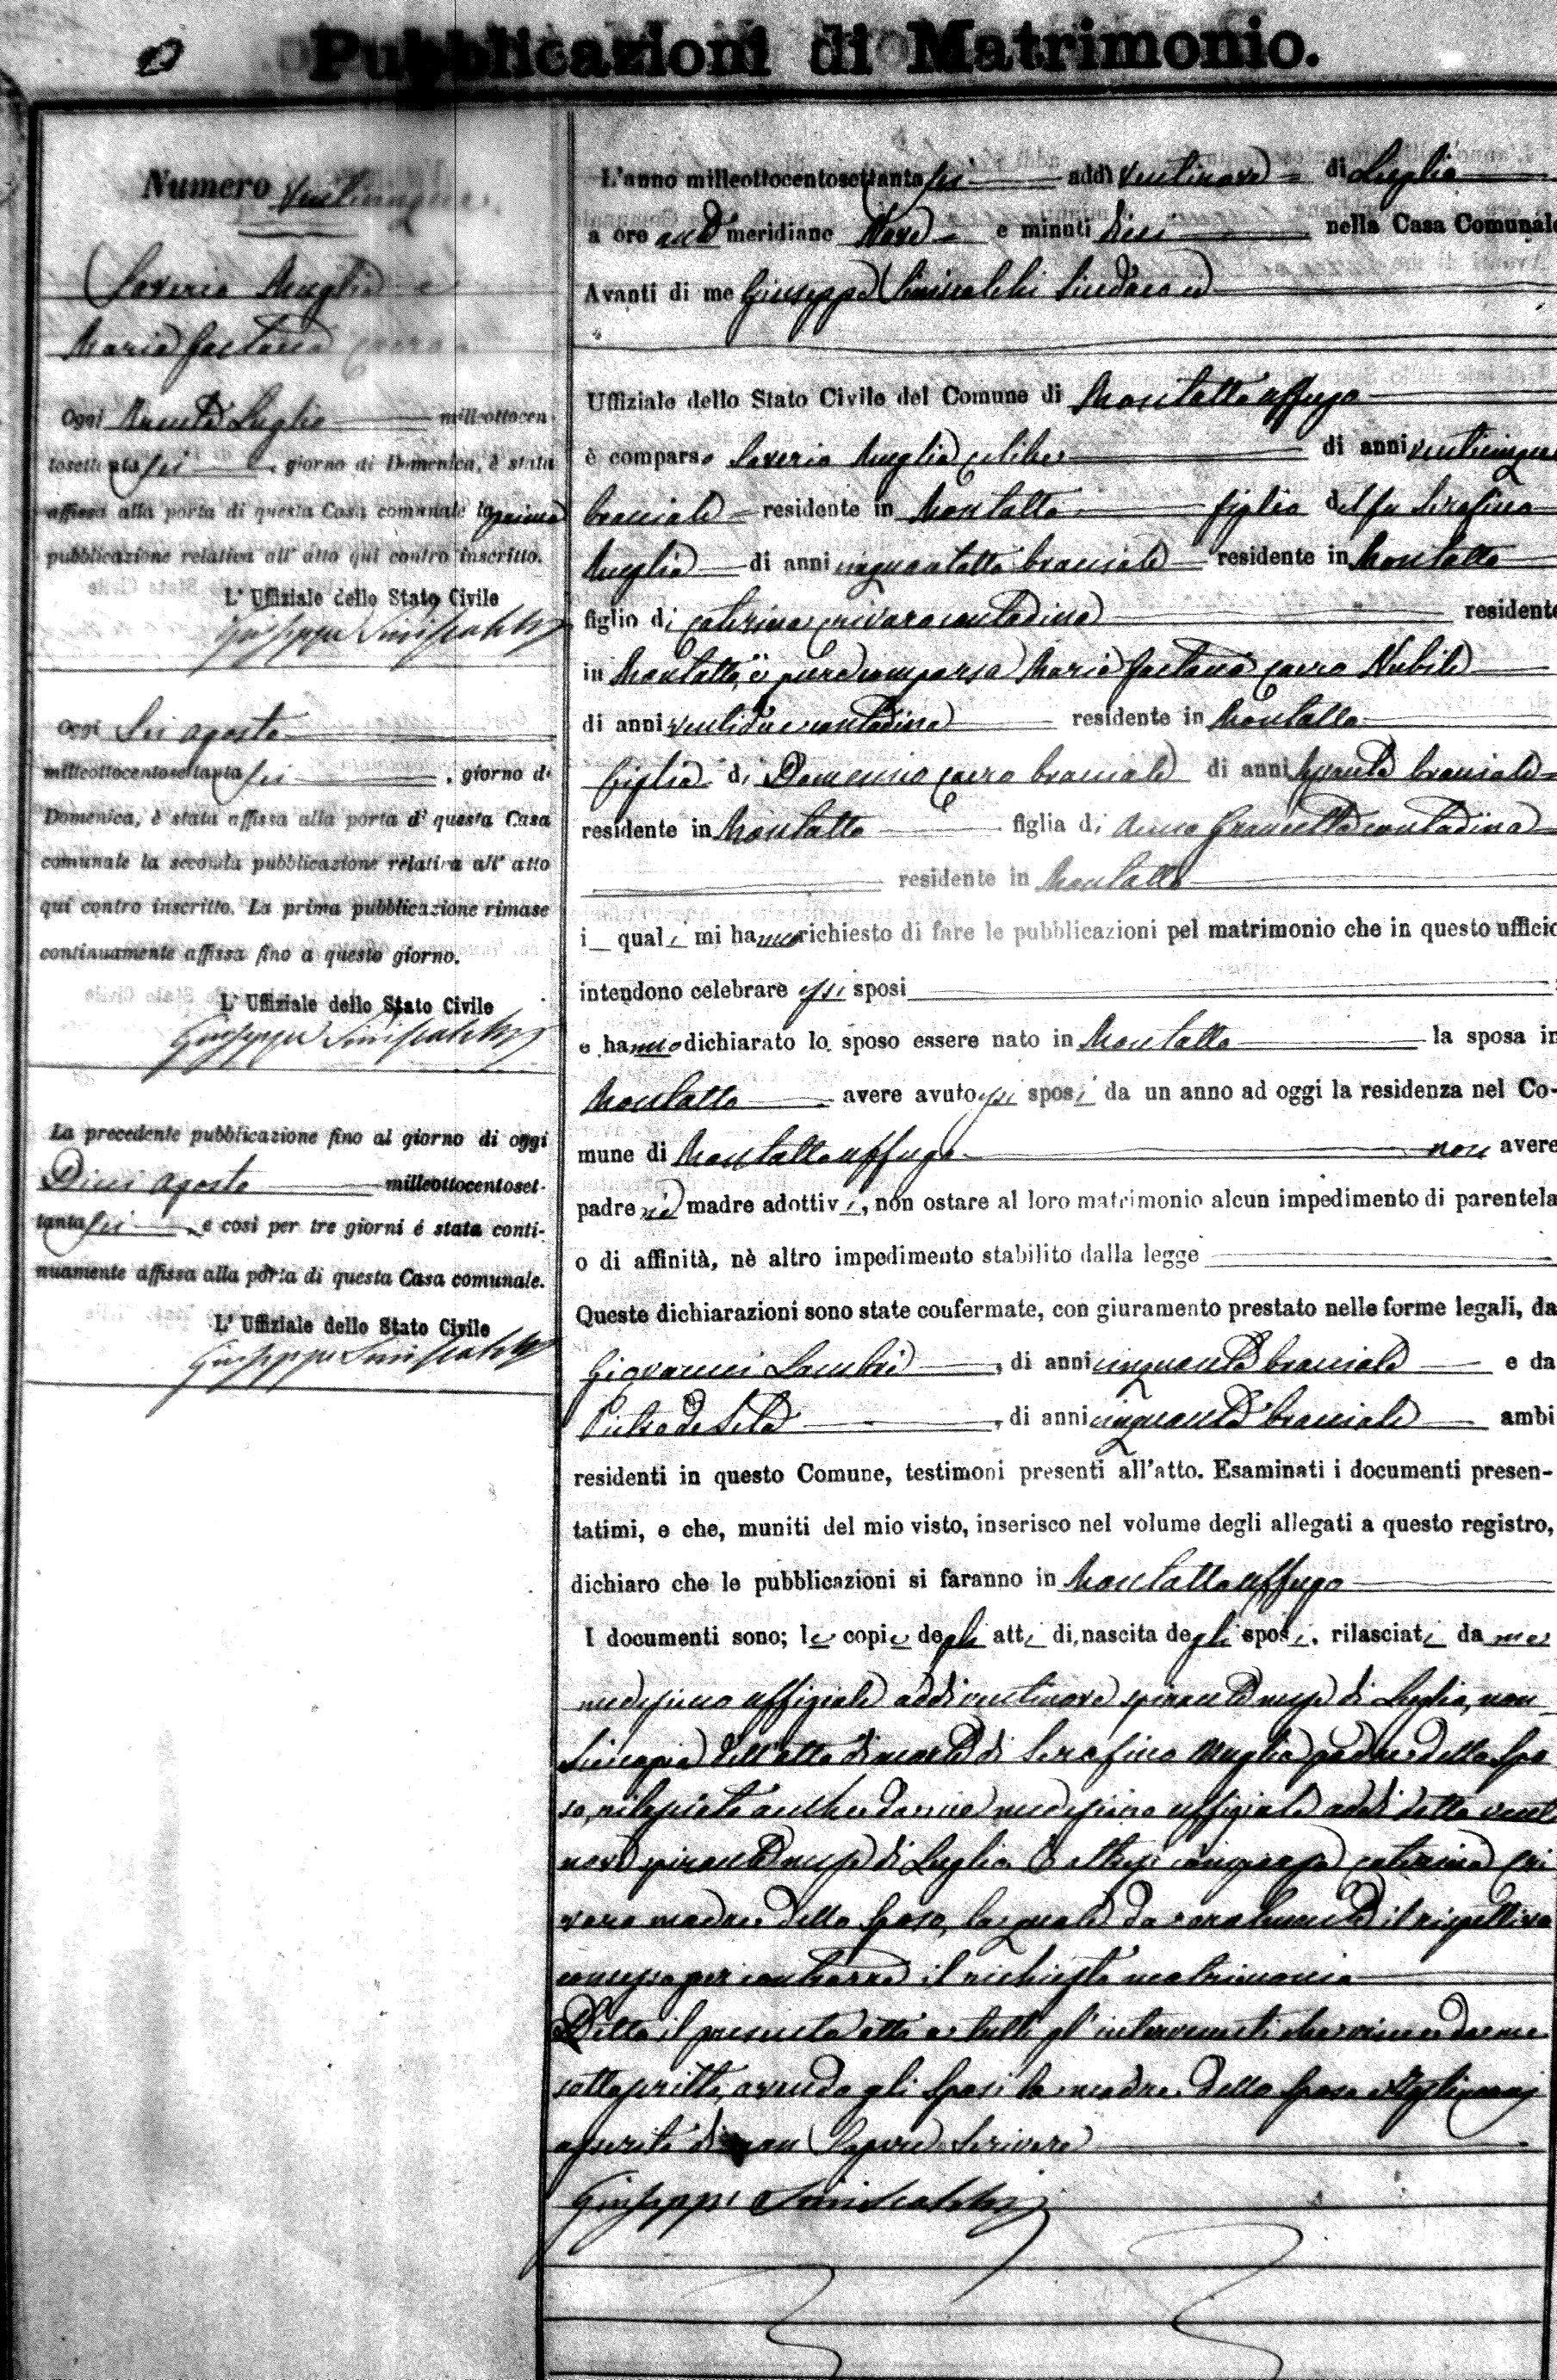 Pubblicazioni di Matrimonio.
Numero Venticinque
Saverio Muglia e
Maria Gaetana
Oggi trenta Luglio milleottocen-
tosettantasei, giorno di Domenica, è stata
affissa alla porta di questa Casa comunale la prima
pubblicazione relativa all' atto qui contro inscritto.
L' Uffiziale dello Stato Civile
Giuseppe Siniscalchi
Oggi Sei agosto
milleottocentosettantasei, giorno di
Domenica, è stata affissa alla porta di questa Casa
comunale la seconda pubblicazione relativa all' atto
qui contro inscritto. La prima pubblicazione rimase
continuamente affissa fino a questo giorno.
L' Uffiziale dello Stato Civile
Giuseppe Siniscalchi
La precedente pubblicazione fino al giorno di oggi
Dieci agosto milleottocentoset-
tantasei, e così per tre giorni é stata conti-
nuamente affissa alla porta di questa Casa comunale.
L' Uffiziale dello Stato Civile
Giuseppe Siniscalchi
L'anno milleottocentosettantasei addì ventinove di Luglio
a ore anti meridiane Nove e minuti dieci nella Casa Comunale
Avanti di me Giuseppe Siniscalchi Sindaco ed
Uffiziale dello Stato Civile del Comune di Montalto uffugo
è comparso Saverio Muglia celibe di anni venticinque
bracciale residente in Montalto figlio del fu Serafino
Muglia di anni cinquantotto bracciale residente in Montalto
figlio di Caterina Crivaro contadina residente
in Montalto, è pure comparsa Maria Gaetana Nubile
di anni ventidue contadina residente in Montalto
figlia di Domenico bracciale di anni bracciale
residente in Montalto figlia di Anna contadina
residente in Montalto
i quali mi hanno richiesto di fare le pubblicazioni pel matrimonio che in questo ufficio
intendono celebrare essi sposi
e hanno dichiarato lo sposo essere nato in Montalto la sposa in
Montalto avere avuto essi sposi da un anno ad oggi la residenza nel Co-
mune di Montalto uffugo non avere
padre nè madre adottivi, non ostare al loro matrimonio alcun impedimento di parentela
o di affinità, nè altro impedimento stabilito dalla legge
Queste dichiarazioni sono state confermate, con giuramento prestato nelle forme legali, da
Giovanni, di anni cinquanta bracciale e da
Pietro de Seta, di anni cinquanta bracciale ambi
residenti in questo Comune, testimoni presenti all'atto. Esaminati i documenti presen-
tatimi, e che, muniti del mio visto, inserisco nel volume degli allegati a questo registro,
dichiaro che le pubblicazioni si faranno in Montalto uffugo
I documenti sono; le copie degli atti di nascita degli sposi, rilasciati da me
medesimo uffiziale addi ventinove spirante mese di Luglio, non
Sicopia dell'atto di morte di Serafino Muglia padre dello spo
so, rilasciata anche da me medesimo uffiziale addi detto venti
nove spirante mese di Luglio. È altresì comparsa Caterina Cri
varo madre dello Sposo, la quale da verbalmente il rispettivo
consenso per contrarre il richiesto matrimonio
Letto il presente atto a tutti gl' intervenuti che viene da me
sottoscritto, avendo gli Sposi la madre dello Sposo e testimoni
asserito di non Sapere Scrivere
Giuseppe Siniscalchi